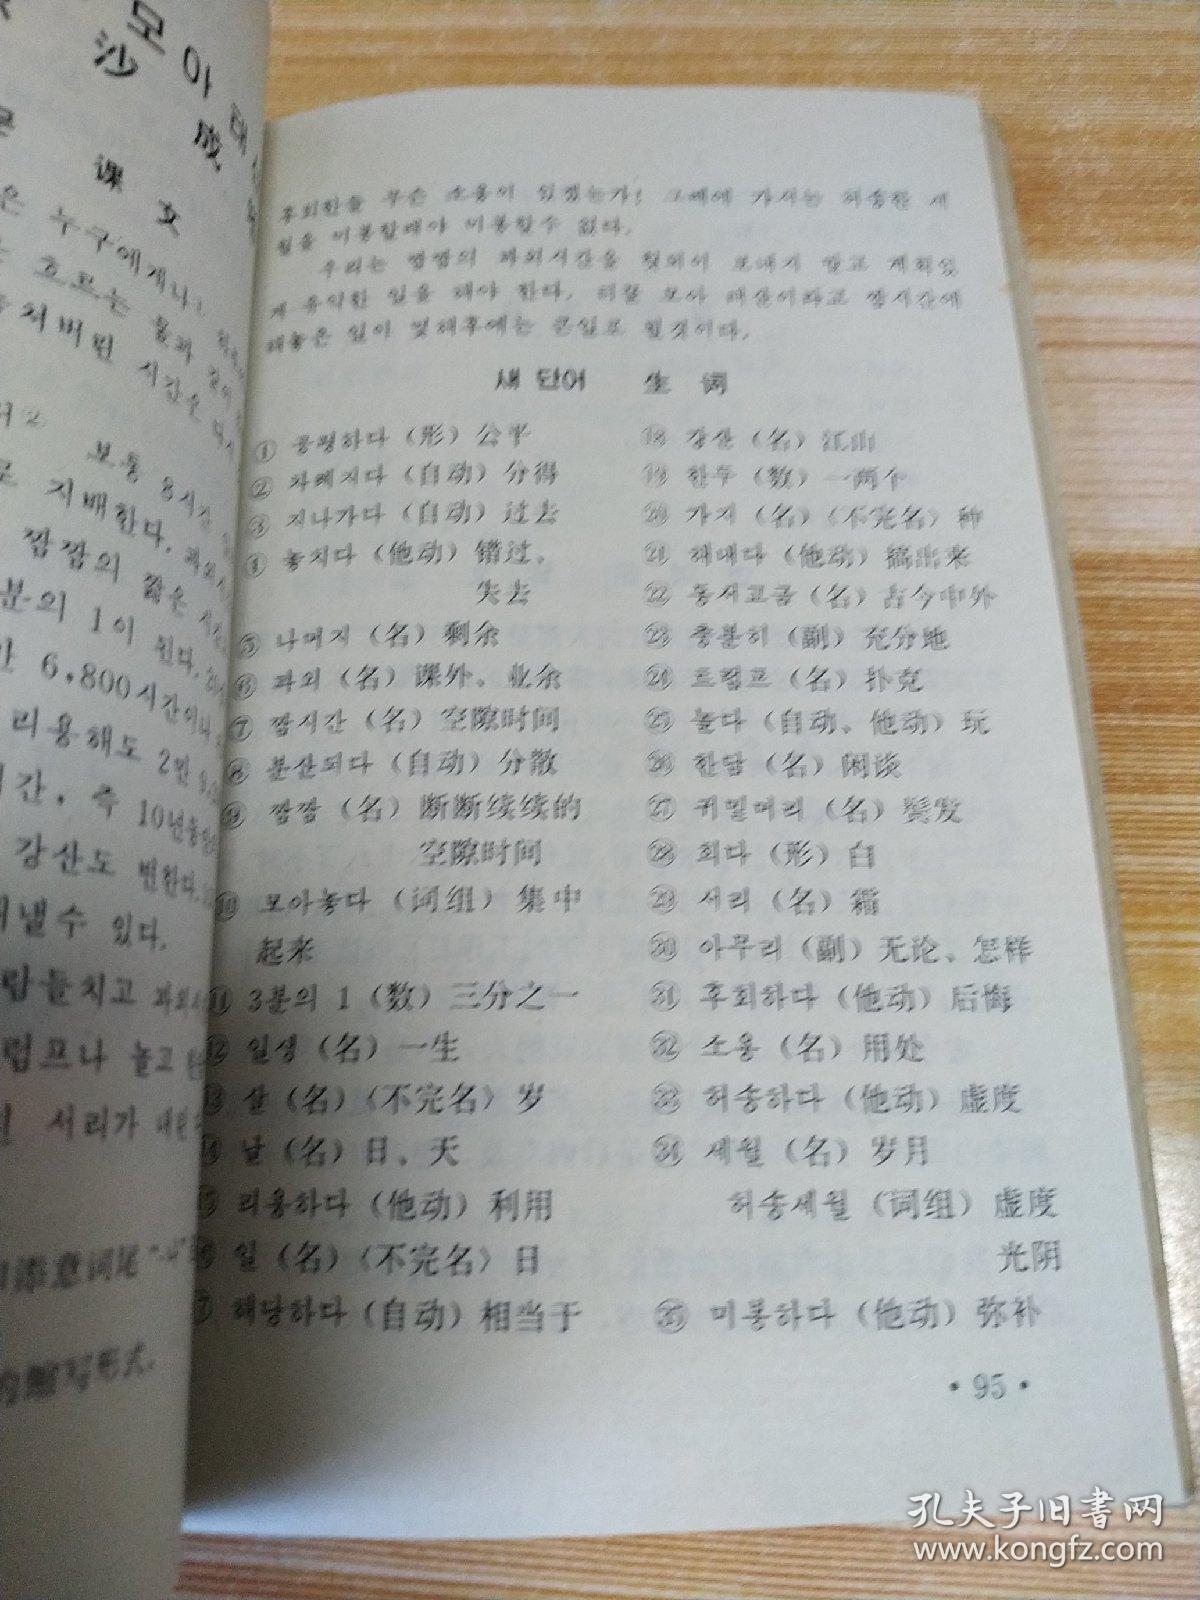 모아
沙 成
课 文
은 누구에게나
흐르는 물과 같이
쳐버린 시간은 다시
보통 8시간
지배한다. 과외시
짬짬의 짧은 시간
분의 1이 된다.
6,800시간이나
리용해도 2만
간, 즉 10년동안
강산도 변한다.
낼수 있다.
서리가 내린
후회한들 무슨 소용이 있겠는가! 그때에 가서는 허송한 세
월을 미봉할래야 미봉할수 없다.
우리는 짬짬의 과외시간을 헛되이 보내지 말고 계획있
게 유익한 일을 해야 한다. 티끌 모아 태산이라고 짬시간에
해놓은 일이 몇해후에는 큰일로 될것이다.
새 단어 生 词
① 공평하다（形）公平
② 차례지다（自动）分得
③ 지나가다（自动）过去
④ 놓치다（他动）错过、
失去
⑤ 나머지（名）剩余
⑥ 과외（名）课外、业余
⑦ 짬시간（名）空隙时间
⑧ 분산되다（自动）分散
⑨ 짬짬（名）断断续续的
空隙时间
⑩ 모아놓다（词组）集中
起来
⑪ 3분의 1（数）三分之一
⑫ 일생（名）一生
⑬ 살（名）（不完名）岁
⑭ 날（名）日、天
⑮ 리용하다（他动）利用
⑯ 일（名）（不完名）日
⑰ 해당하다（自动）相当于
⑱ 강산（名）江山
⑲ 한두（数）一两个
⑳ 가지（名）（不完名）种
㉑ 해내다（他动）搞出来
㉒ 동서고금（名）古今中外
㉓ 충분히（副）充分地
㉔ 트럼프（名）扑克
㉕ 놀다（自动、他动）玩
㉖ 한담（名）闲谈
㉗ 귀밑머리（名）鬓发
㉘ 희다（形）白
㉙ 서리（名）霜
㉚ 아무리（副）无论、怎样
㉛ 후회하다（他动）后悔
㉜ 소용（名）用处
㉝ 허송하다（他动）虚度
㉞ 세월（名）岁月
허송세월（词组）虚度
光阴
㉟ 미봉하다（他动）弥补
·95·
孔夫子旧书网
www.kongfz.com